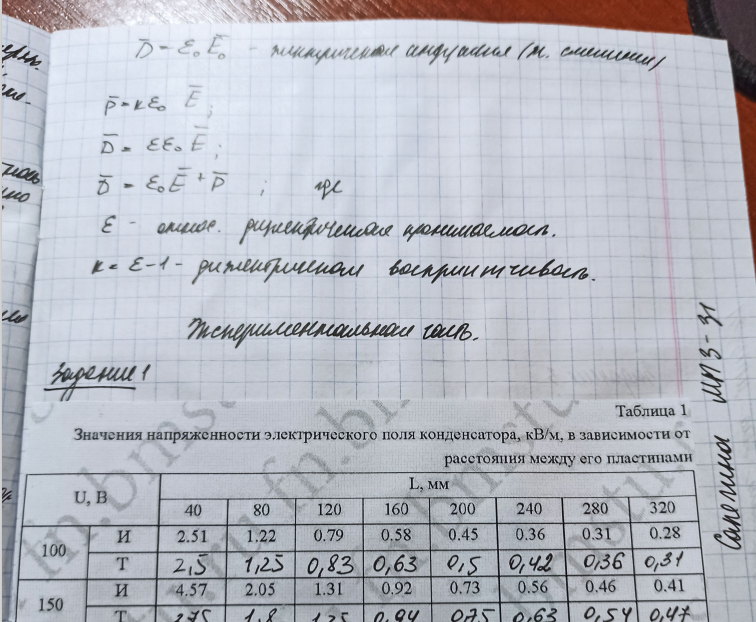 D̄ = ε₀ Ē₀ - электрическая индукция (эл. смещение)
P̄ = κε₀ Ē ;
D̄ = εε₀ Ē ;
D̄ = ε₀Ē + P̄ ; где
ε - относ. диэлектрическая проницаемость.
κ = ε-1 - диэлектрическая восприимчивость.
Экспериментальная часть.
Задание 1
Таблица 1
Значения напряженности электрического поля конденсатора, кВ/м, в зависимости от
расстояния между его пластинами
U, В L, мм
40 80 120 160 200 240 280 320
100 И 2.51 1.22 0.79 0.58 0.45 0.36 0.31 0.28
Т 2,5 1,25 0,83 0,63 0,5 0,42 0,36 0,31
150 И 4.57 2.05 1.31 0.92 0.73 0.56 0.46 0.41
Т 0,94 0,75 0,63 0,54 0,47
МТ3-31
fn.bmstu